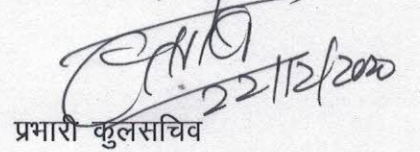 22/12/2020
प्रभारी कुलसचिव